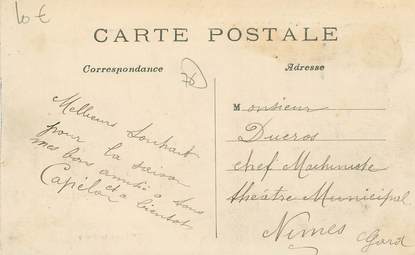 10 €
CARTE POSTALE
Correspondance
Adresse
Meilleurs Souhait
pour la saison
mes bons amitié a tous
et a bientot
Capélo
Monsieur
Ducros
chef Machiniste
théâtre Municipal
Nimes
Gard